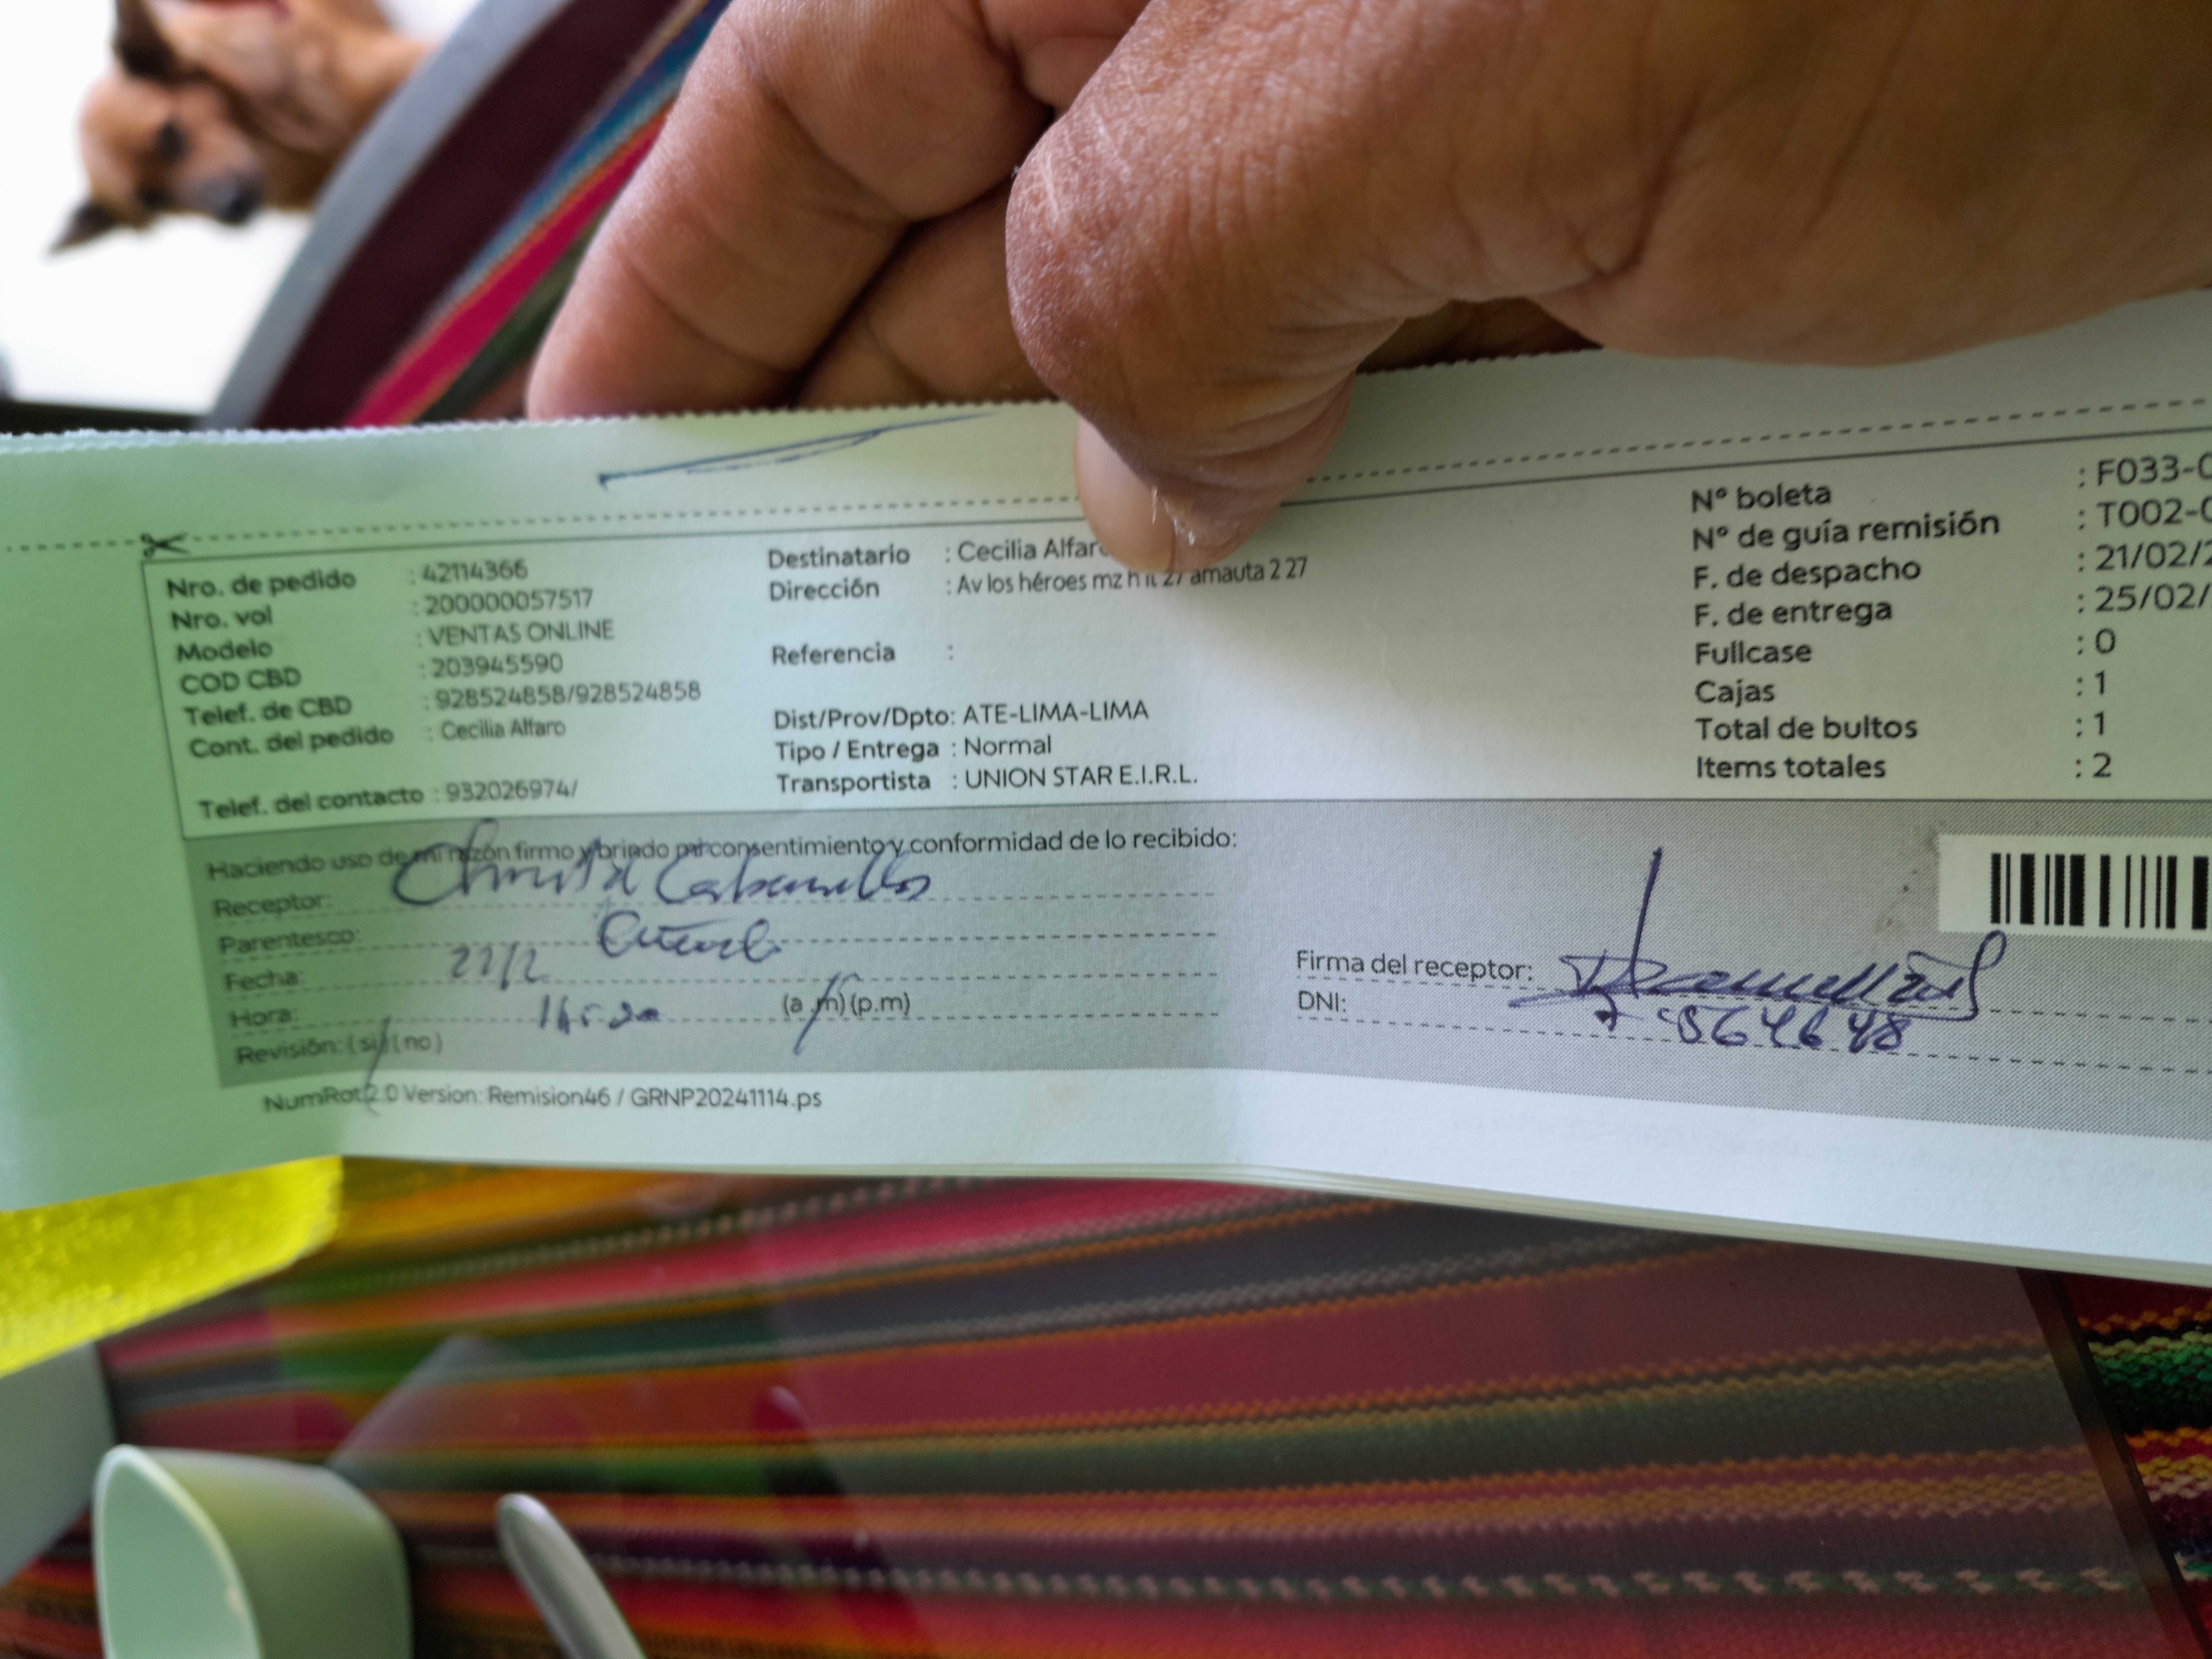 Nro. de pedido : 42114366
Nro. vol : 200000057517
Modelo : VENTAS ONLINE
COD CBD : 203945590
Telef. de CBD : 928524858/928524858
Cont. del pedido : Cecilia Alfaro
Telef. del contacto : 932026974/
Destinatario : Cecilia Alfaro
Dirección : Av los héroes mz h lt 27 amauta 2 27
Referencia :
Dist/Prov/Dpto: ATE-LIMA-LIMA
Tipo / Entrega : Normal
Transportista : UNION STAR E.I.R.L.
N° boleta : F033-0
N° de guía remisión : T002-0
F. de despacho : 21/02/2
F. de entrega : 25/02/
Fullcase : 0
Cajas : 1
Total de bultos : 1
Items totales : 2
Haciendo uso de mi razón firmo y brindo mi consentimiento y conformidad de lo recibido:
Receptor:
Parentesco:
Fecha: 22/2
Hora: (a.m) (p.m)
Revisión: (si) (no)
Firma del receptor:
DNI:
NumRot 2.0 Version: Remision46 / GRNP20241114.ps